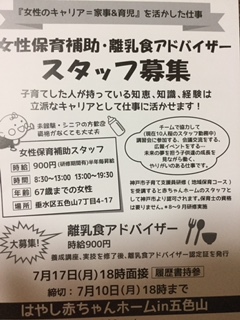 『女性のキャリア＝家事&育児』を活かした仕事
女性保育補助・離乳食アドバイザー
スタッフ募集
子育てした人が持っている知恵、知識、経験は
立派なキャリアとして仕事に活かせます!
未経験・シニアの方歓迎
資格がなくとも大丈夫
女性保育補助スタッフ
時給 900円(研修期間有)半年毎昇給
時間 8:30~13:00 13:00~19:30
年齢 67歳までの女性
場所 垂水区五色山7丁目4-17
チームで協力して
(現在10人程のスタッフ勤務中)
講習会に参加する、会議交流をする、
広報イベントをする…
未来の夢を担う子供達の成長を
見ながら働く、
やりがいのある仕事です。
神戸市子育て支援員研修(地域保育コース)
を受講すると赤ちゃんホームのスタッフとし
て神戸市より認可されます。保育士の資格
は要りません。*8~9月研修実施
大募集!
離乳食アドバイザー
時給900円
養成講座、実技を修了後、離乳食アドバイザー認定証を発行
7月17日(月)18時面接 履歴書持参
締切:7月10日(月)18時まで
はやし赤ちゃんホームin五色山